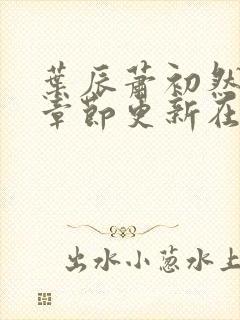 葉辰蕭初然
章節更新在
出水小葱水上